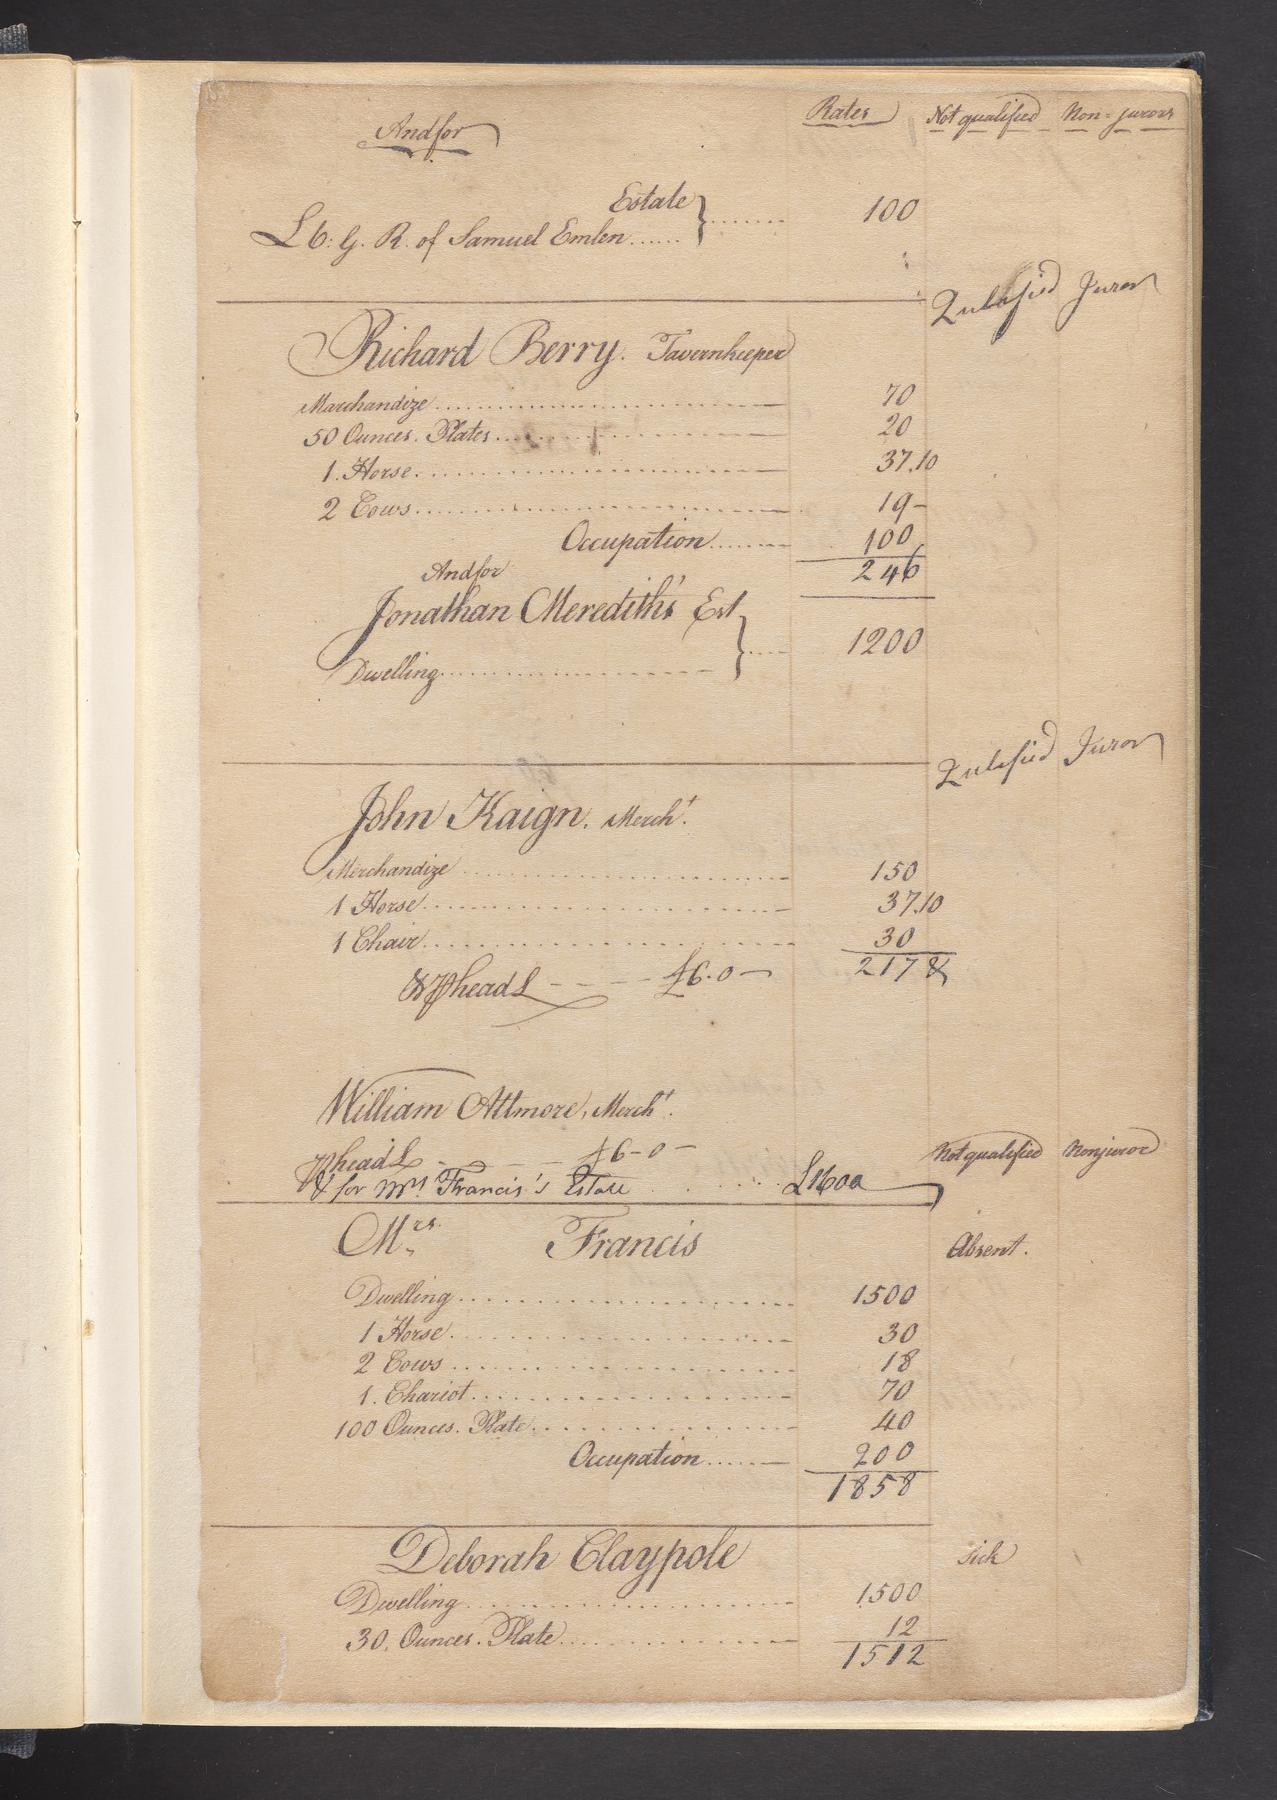 Andfor Rates Not qualified Non-jurors
Estate
£6: G. R. of Samuel Emlen...... 100
Qulefied Juror
Richard Berry. Tavernkeeper
Marchandize 70
50 Ounces. Plates 20
1. Horse 37.10
2 Cows 19-
Occupation 100
246
Andfor
Jonathan Meredith's Est
Dwelling 1200
Qulefied Juror
John Kaign. Mercht.
Merchandize 150
1 Horse 37.10
1 Chair 30
217
& head £6.0
William Attmore, Mercht.
head £6-0- Not qualified Nonjuror
& for Mrs. Francis's Estate £1600
Mrs. Francis Absent.
Dwelling 1500
1 Horse 30
2 Cows 18
1. Chariot 70
100 Ounces. Plate 40
Occupation 200
1858
Deborah Claypole sick
Dwelling 1500
30. Ounces. Plate 12
1512